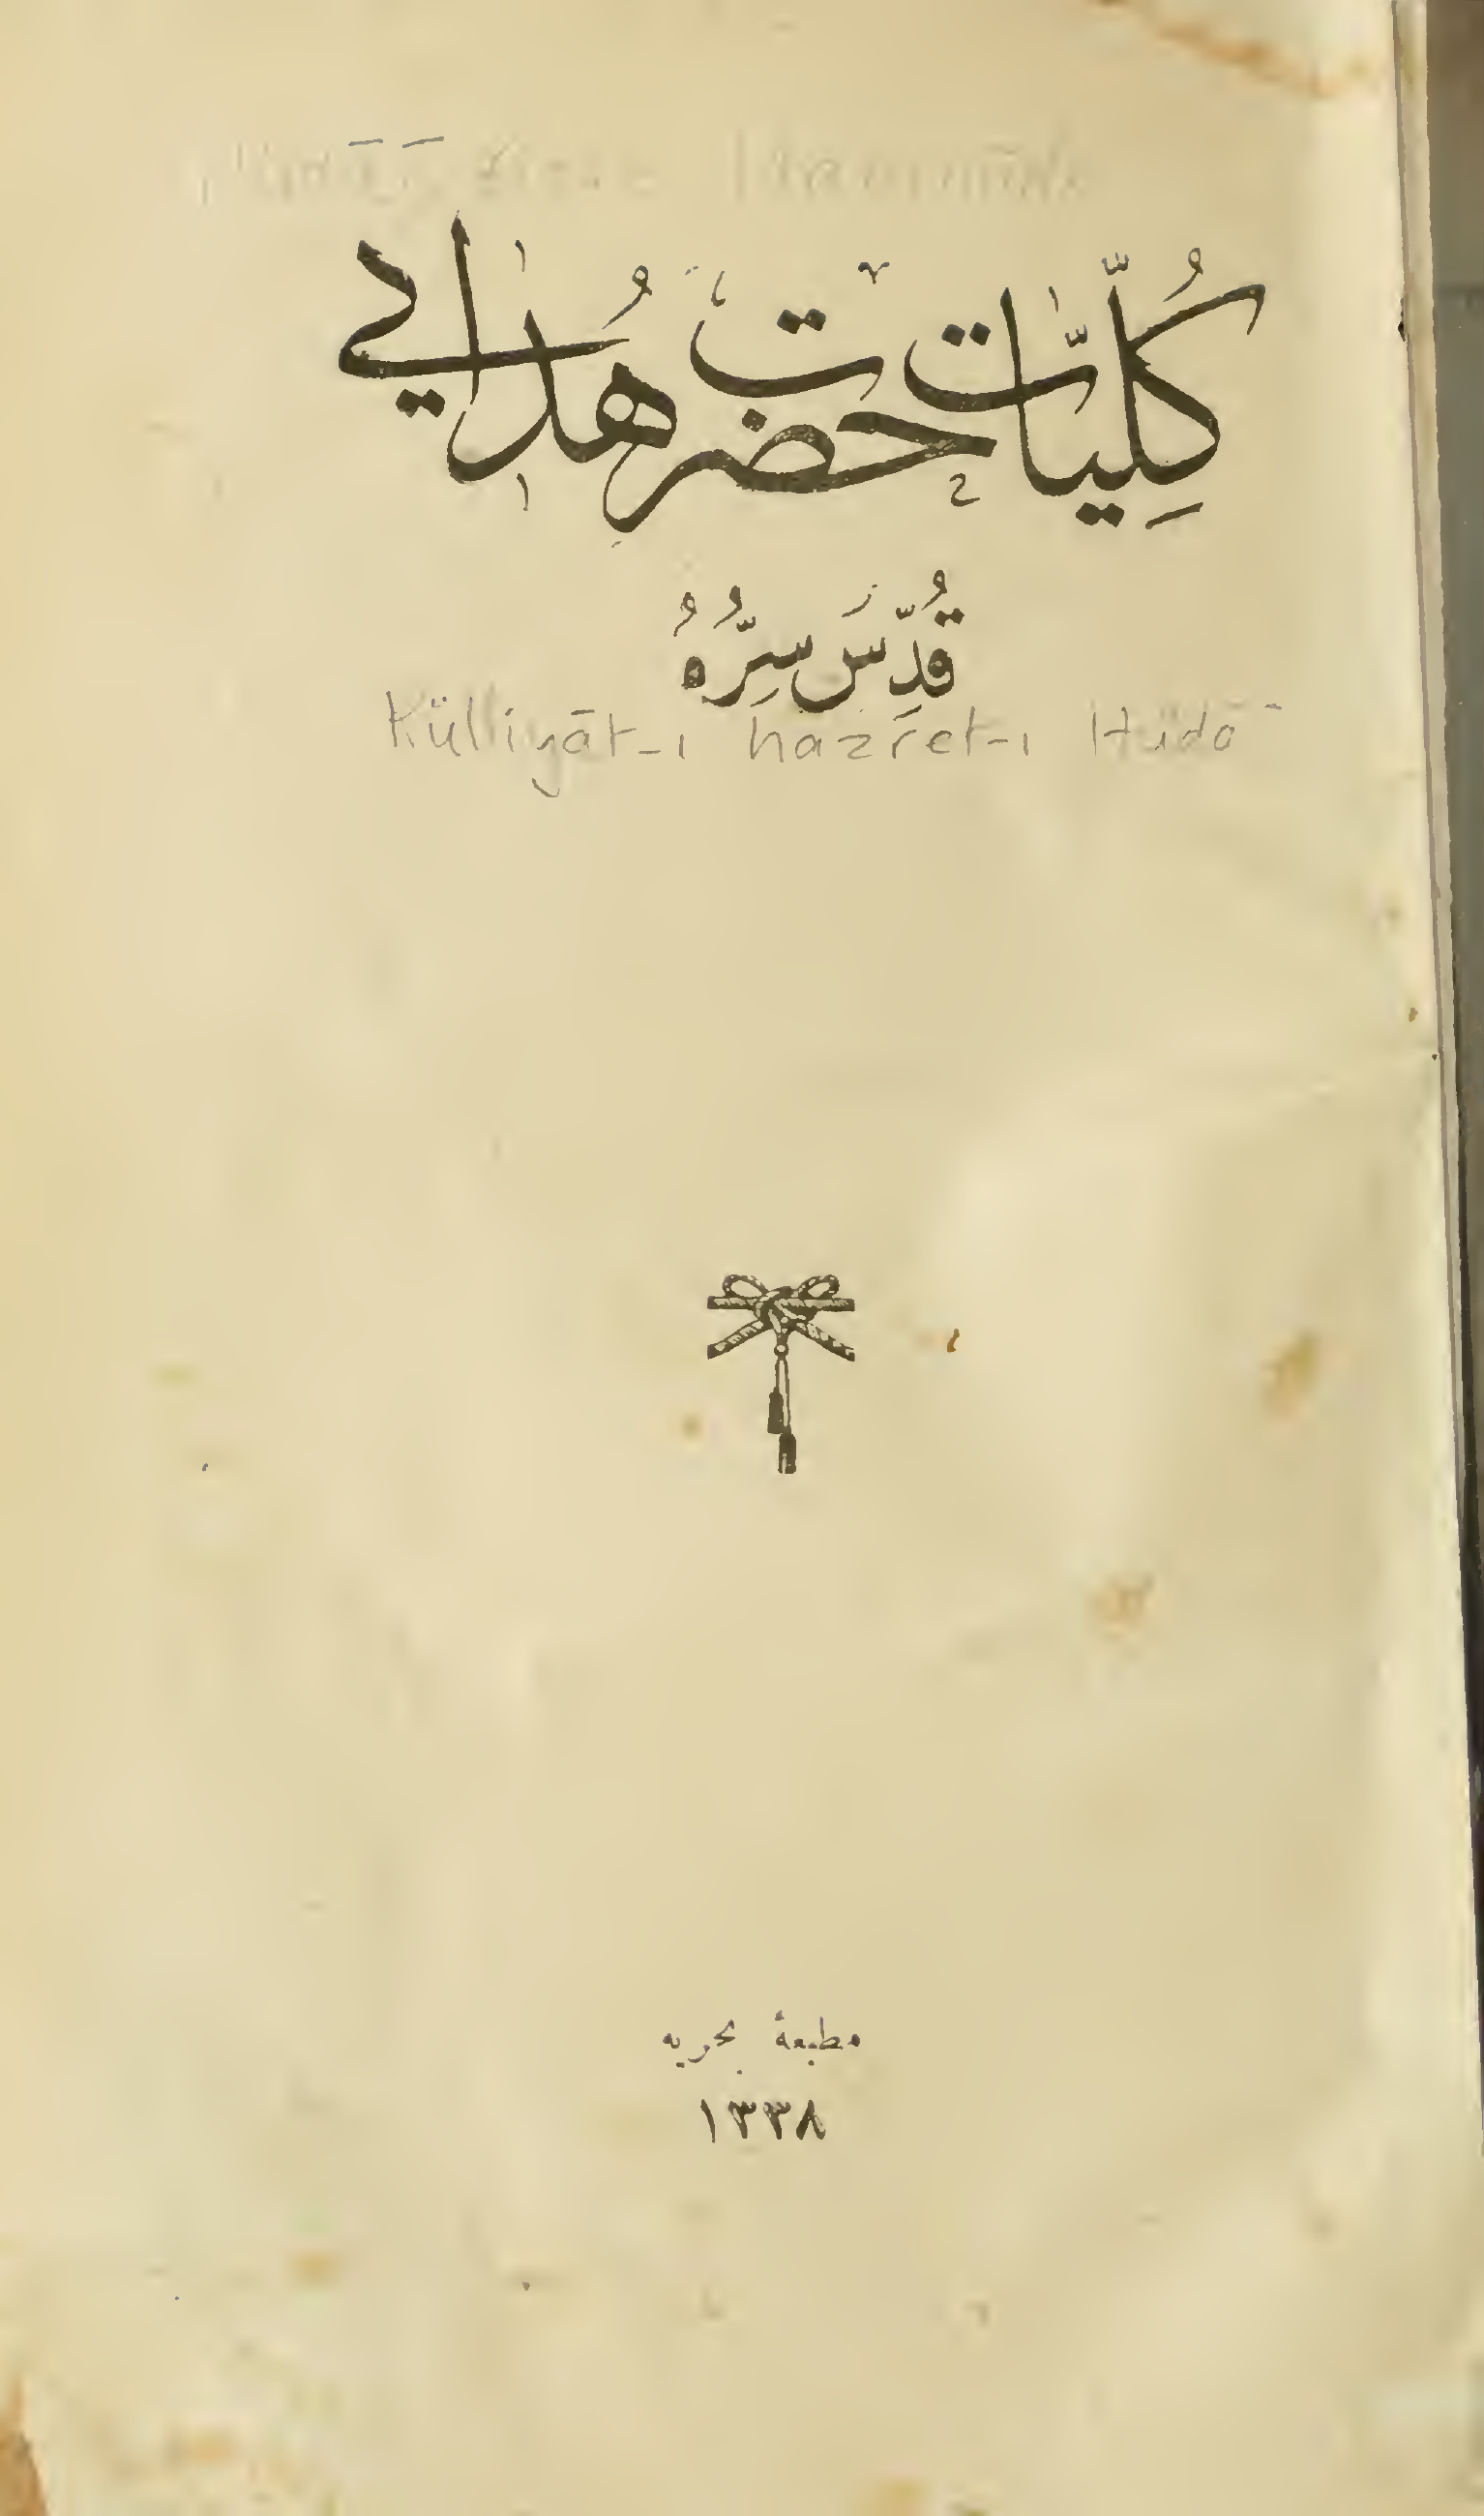 كُلِّيَّات حضرت هُدايي
قُدِّسَ سِرُّهُ
Külliyāt-ı hazret-ı Hüdā
مطبعۀ بحريه
١٣٣٨